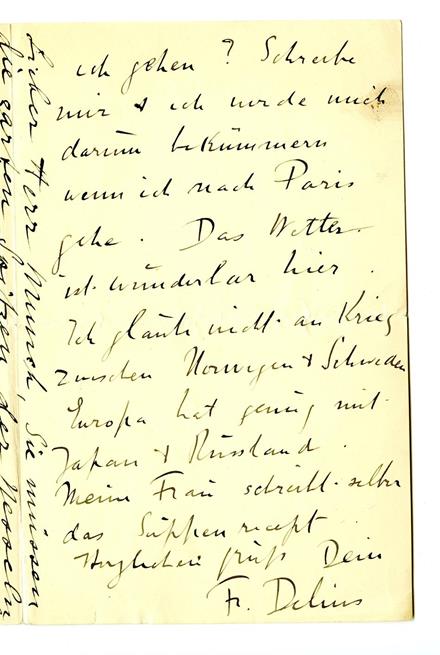 ich gehen? Schreibe
mir & ich werde mich
darum bekümmern
wenn ich nach Paris
gehe. Das Wetter
ist wunderbar hier.
Ich glaube nicht an Krieg
zwischen Norwegen & Schweden
Europa hat genug mit
Japan & Russland.
Meine Frau schreibt selber
das Suppenrecept
Herzlichen gruss Dein
Fr. Delius
Lieber Herr Munch, Sie müssen
die zarten Spitzen der Nesseln